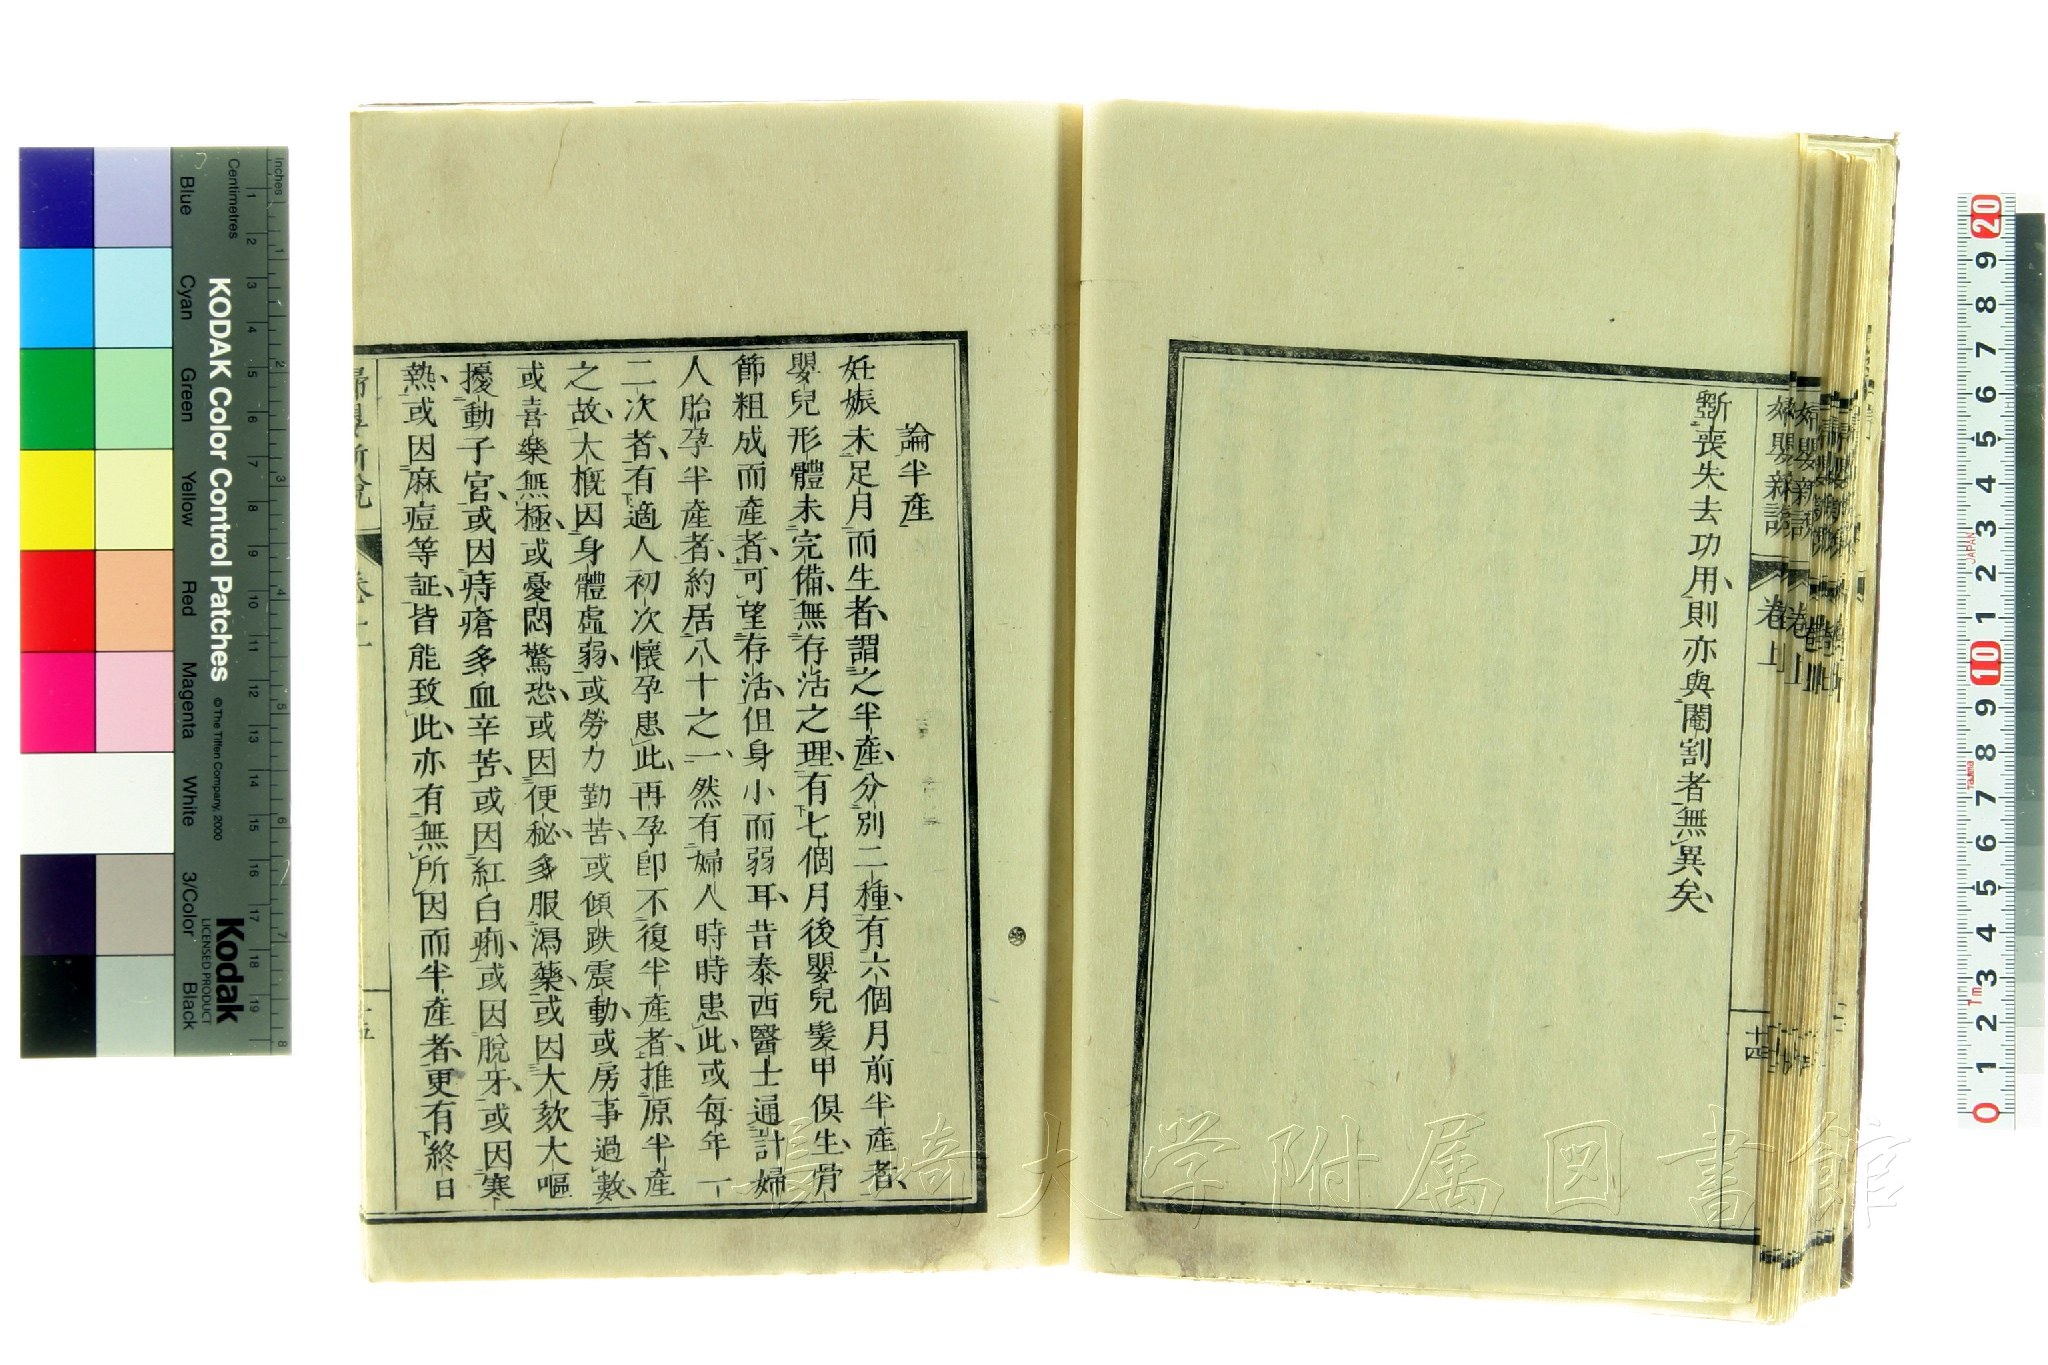 斷喪失去功用、則亦與閹割者無異矣、
婦嬰新說
卷上
十四
論半產
妊娠未足月而生者、謂之半產、分別二種、有六個月前半產者、
嬰兒形體未完備、無存活之理、有七個月後嬰兒髮甲俱生、骨
節粗成而產者、可望存活、但身小而弱耳、昔泰西醫士通計婦
人胎孕半產者、約居八十之一、然有婦人時時患此、或每年一
二次者、有適人初次懷孕患此、再孕卽不復半產者、推原半產
之故、大槪因身體虛弱、或勞力勤苦、或傾跌震動、或房事過數、
或喜樂無極、或憂悶驚恐、或因便秘、多服瀉藥、或因大欬大嘔
擾動子宮、或因痔瘡多血辛苦、或因紅白痢、或因脫牙、或因寒
熱、或因麻痘等証、皆能致此、亦有無所因而半產者、更有終日
長崎大学附属図書館
KODAK Color Control Patches
© The Tiffen Company, 2000
Kodak
LICENSED PRODUCT
Inches
Centimetres
Blue
Cyan
Green
Yellow
Red
Magenta
White
3/Color
Black
1 2 3 4 5 6 7 8 9 10 11 12 13 14 15 16 17 18 19
1 2 3 4 5 6 7 8
20 9 8 7 6 5 4 3 2 1 10 9 8 7 6 5 4 3 2 1 0
JAPAN